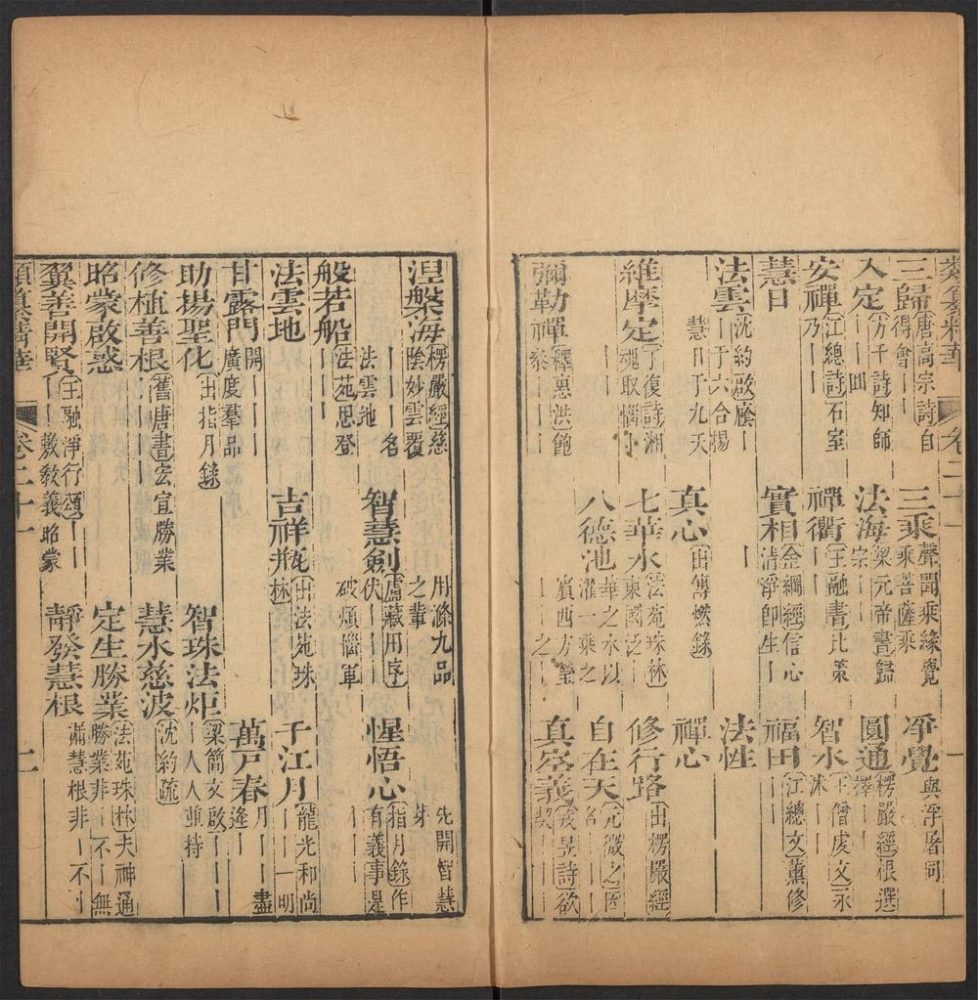 類纂精華 卷二十一 一
三歸 唐高宗詩自
得會｜｜
三乘 聲聞乘緣覺
乘菩薩乘
淨覺 與浮屠同
入定 方干詩知師
｜｜回
法海 梁元帝書歸
宗｜｜
圓通 楞嚴經根選
擇｜｜
安禪 江總詩石室
乃｜｜
禪衢 王融書比策
｜｜
智水 王僧虔文永
沐｜｜
慧日
實相 金綱經信心
清淨即生｜
｜
福田 江總文薰修
｜｜
法雲 沈約啟廕｜
｜于六合揚
慧日于九天
法性
真心 出傳燃錄
禪心
維摩定 了復詩湘
取惱小
｜｜｜
七華水 法苑珠林
東國泛｜
｜華之水以
修行路 出楞嚴經
八德池 濯一乘之
賓西方瑩
｜｜｜之｜
自在天 元微之
名｜｜｜
彌勒禪 釋惠洪
參｜｜｜
真寂義 戎昱詩欲
契｜｜｜
涅槃海 楞嚴經慈
陰妙雲覆
｜｜｜名
法雲地
用滌九品
之輩
先開智慧
芽
般若船 法苑思登
｜｜｜
智慧劍 盧藏用序
伏｜｜｜
破煩惱軍
惺悟心 指月錄作
有義事是
｜｜｜
法雲地
吉祥瓶 出法苑珠
林
千江月 龍光和尚
｜｜｜一明
甘露門 開｜｜｜
廣度羣品
萬戸春 月｜｜｜盡
逢｜｜｜
助揚聖化 出指月錄
智珠法炬 梁簡文啟｜｜
｜｜人人並持
修植善根 舊唐書宏宜勝業
｜｜｜｜
慧水慈波 沈約疏
昭蒙啟惑
定生勝業 法苑珠林夫神通
勝業非｜不｜無
翼善開賢 王融淨行頌｜｜
｜｜敷教義昭蒙
靜發慧根 漏慧根非｜不｜
類纂精華 卷二十一 二